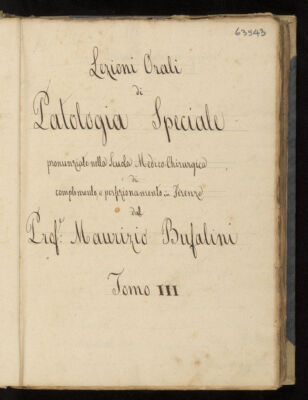 63943
Lezioni Orali
di
Patologia Speciale
pronunziate nella Scuola Medico-Chirurgica
di
complemento, e perfezionamento in Firenze
dal
Prof.r Maurizio Bufalini
Tomo III